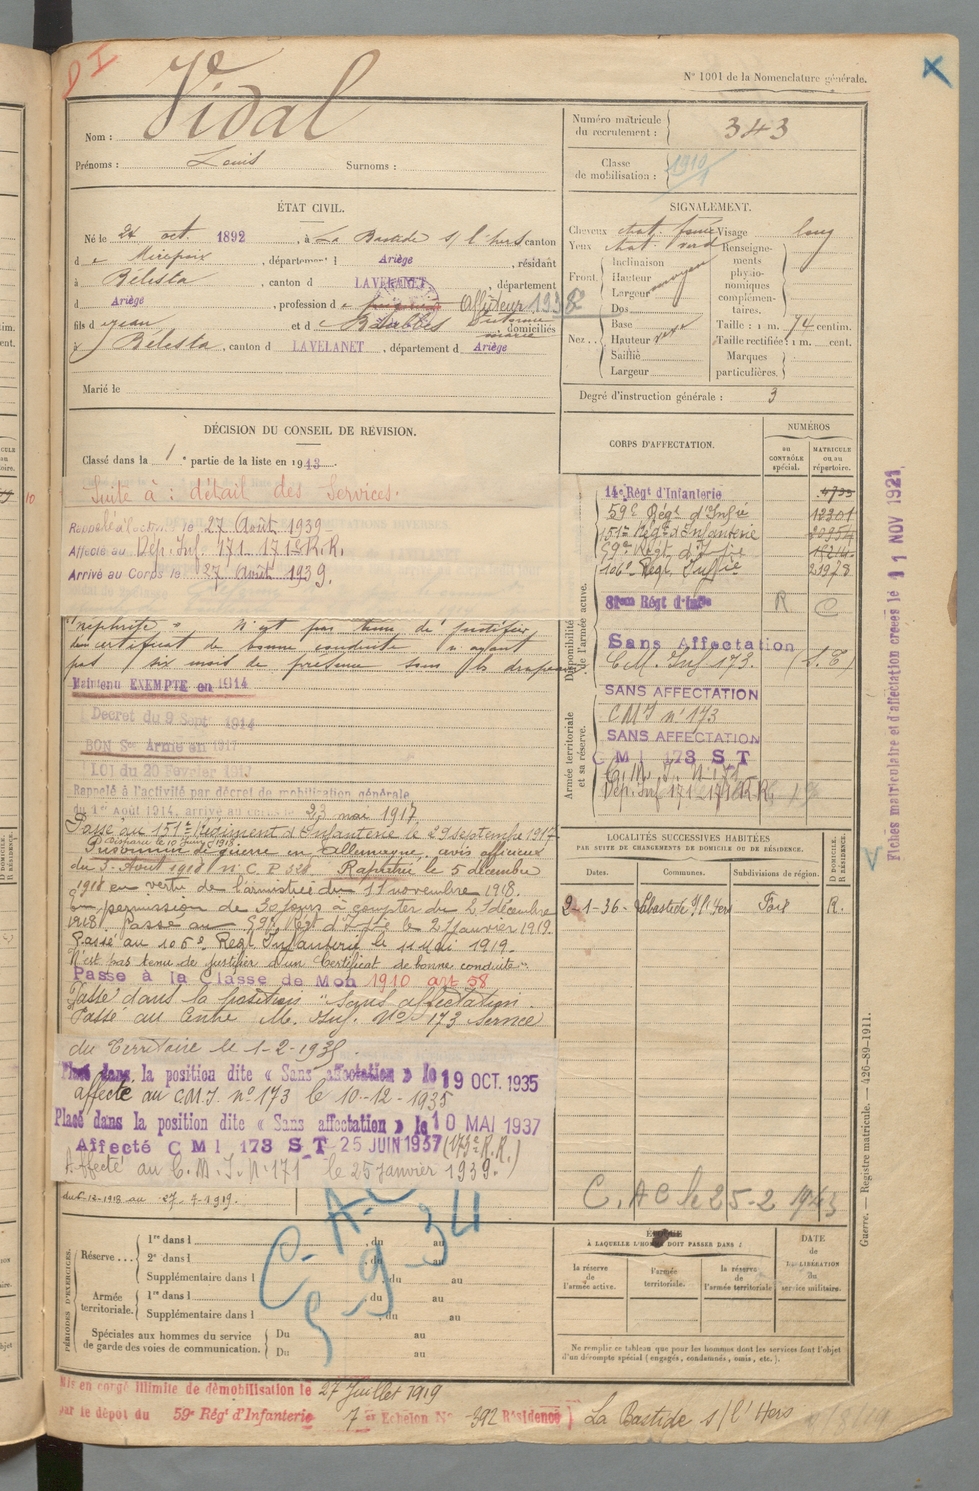 N° 1001 de la Nomenclature générale.
Nom : Vidal
Prénoms : Louis Surnoms :
Numéro matricule du recrutement : 343
Classe de mobilisation : 1910
ÉTAT CIVIL.
Né le 24 oct. 1892, à La Bastide s/ l'hers canton
d e Mirepoix, département d Ariège, résidant
à Bélesta, canton d LAVELANET
d Ariège, profession d Affuteur 1938
fils d e Jean et d e domiciliés
à Bélesta, canton d LAVELANET, département d Ariège
Marié le
SIGNALEMENT.
Cheveux chat. foncé Visage long
Yeux chat. verd
Front. Inclinaison
Hauteur moyen
Largeur
Nez. Dos
Base
Hauteur
Saillie
Largeur
Renseignements physionomiques complémentaires.
Taille : 1 m. 74 centim.
Taille rectifiée : 1 m. cent.
Marques particulières.
Degré d'instruction générale : 3
DÉCISION DU CONSEIL DE RÉVISION.
Classé dans la 1e partie de la liste en 1913
Suite à : détail des Services.
Rappelé à l'activité le 27 Août 1939
Affecté au Dép. Inf. 171 171e R.R.
Arrivé au Corps le 27 Août 1939.
"néphrite" N'est pas tenu de justifier
d'un certificat de bonne conduite n'ayant
pas six mois de présence sous les drapeaux
Maintenu EXEMPTÉ en 1914
Décret du 9 Sept 1914
BON Sce Armé en 1917
LOI du 20 Février 1917
Rappelé à l'activité par décret de mobilisation générale
du 1er Août 1914, arrivé au corps le 23 mai 1917.
Passé au 151e Régiment d'Infanterie le 29 septembre 1917
Disparu le 10 juin 1918
Prisonnier de guerre en Allemagne, avis officieux
du 3 Août 1918 n° C. P. Rapatrié le 5 décembre
1918 en vertu de l'armistice du 11 novembre 1918.
En permission de 30 jours à compter du 21 décembre
1918. Passé au 59e Régt d'Inftie le 21 janvier 1919.
Passé au 106e Régt Infanterie le 11 Mai 1919.
N'est pas tenu de justifier d'un "Certificat de bonne conduite".
Passé à la Classe de Mon 1910 art 58
Passé dans la position "Sans affectation.
Passé au Centre M. Inf. No 173 service
du Territoire le 1-2-1935.
Placé dans la position dite « Sans affectation » le 19 OCT. 1935
affecté au C.M.I. n° 173 le 10-12-1935
Placé dans la position dite « Sans affectation » le 10 MAI 1937
Affecté C M I 173 S T 25 JUIN 1937 (173e R.R.)
Affecté au C.M.I. N° 171 le 25 janvier 1939.
au 27-7-1919.
CORPS D'AFFECTATION.
NUMÉROS
au CONTRÔLE spécial.
MATRICULE ou au répertoire.
Disponibilité de l'armée active.
14e Régt d'Infanterie
59e Régt d'Infie 12301
151e Régt d'Infanterie 20954
59e Régt d'Inftie
106e Régt Inftie 21978
81eme Régt d'Infie R C
Sans Affectation
C.M. Inf 173. (S.T)
Armée territoriale et sa réserve.
SANS AFFECTATION
CMI n° 173
SANS AFFECTATION
C M I 173 S T
C. M. I. N° 171
Dép. Inf 171 171e R.R.
LOCALITÉS SUCCESSIVES HABITÉES
PAR SUITE DE CHANGEMENTS DE DOMICILE OU DE RÉSIDENCE.
Dates. Communes. Subdivisions de région. D DOMICILE. R RÉSIDENCE.
2-1-36- Labastide s/l'Hers Foix R.
C. A C le 25-2 1943
C. A.C 5-9-34
PÉRIODES D'EXERCICES.
Réserve 1re dans l , du au
2e dans l , du au
Supplémentaire dans l , du au
Armée territoriale. 1re dans l , du au
Supplémentaire dans l , du au
Spéciales aux hommes du service de garde des voies de communication. Du au
Du au
ÉPOQUE
À LAQUELLE L'HOMME DOIT PASSER DANS :
la réserve de l'armée active.
l'armée territoriale.
la réserve de l'armée territoriale
DATE de LA LIBÉRATION du service militaire.
Ne remplir ce tableau que pour les hommes dont les services font l'objet
d'un décompte spécial (engagés, condamnés, omis, etc.).
Mis en congé illimité de démobilisation le 27 Juillet 1919
par le dépôt du 59e Régt d'Infanterie 7 er Echelon N° 392 Résidence La Bastide s/l'Hers
Fiches matriculaire et d'affectation créées le 11 NOV 1921
Guerre. — Registre matricule. — 426-89-1911.